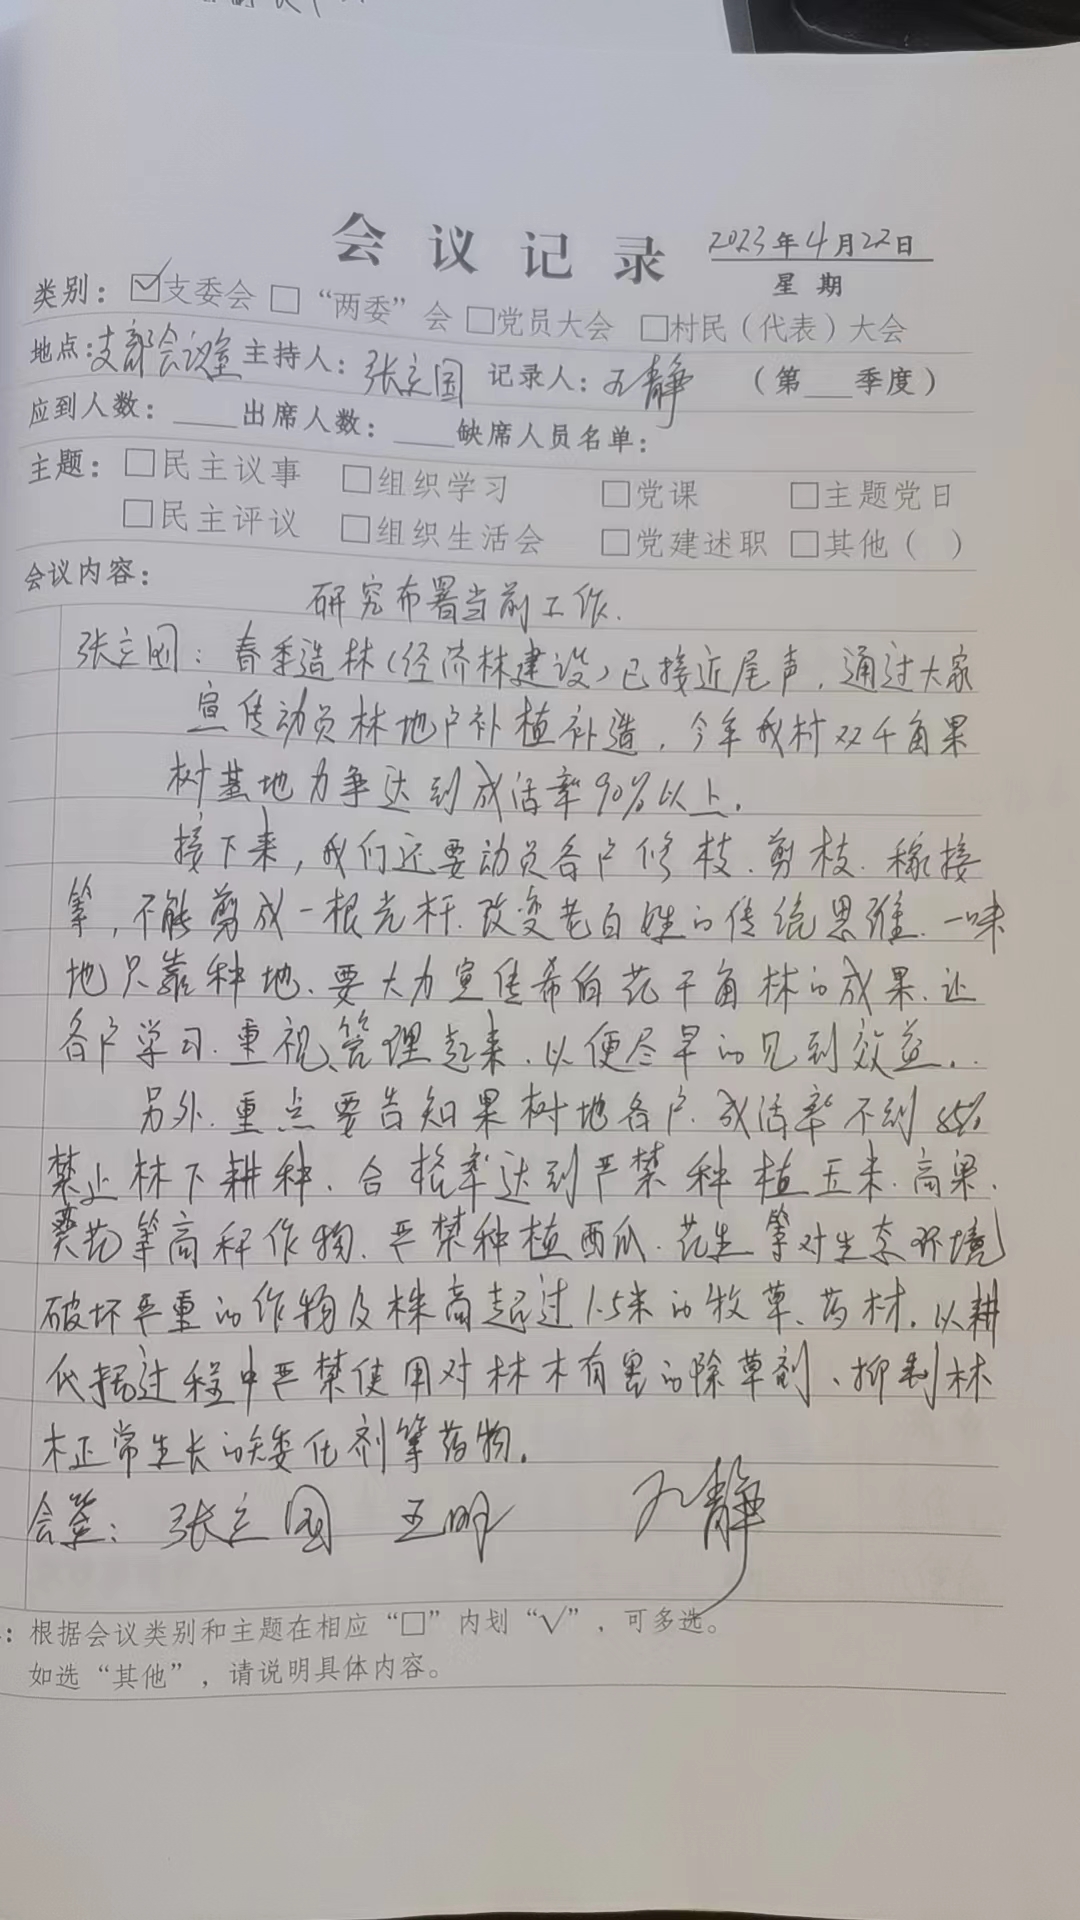 会议记录 2023年4月22日
星期
类别：☑支委会 □“两委”会 □党员大会 □村民（代表）大会
地点：支部会议室 主持人：张立国 记录人：孔静 （第___季度）
应到人数：____出席人数：____缺席人员名单：
主题：□民主议事 □组织学习 □党课 □主题党日
□民主评议 □组织生活会 □党建述职 □其他（ ）
会议内容：
研究布署当前工作.
张立国：春季造林(经济林建设)已接近尾声，通过大家
宣传动员林地户补植补造，今年我村双千亩果
树基地力争达到成活率90%以上。
接下来，我们还要动员各户修枝、剪枝、稼接
等，不能剪成一根光杆.改变老百姓的传统思维.一味
地只靠种地、要大力宣传千亩林的成果.让
各户学习.重视、管理起来.以便尽早的见到效益..
另外.重点要告知果树地各户.成活率不到85%
禁止林下耕种、合格率达到严禁种植玉米.高粱.
葵花等高秆作物、严禁种植西瓜.花生等对生态环境
破坏严重的作物及株高超过1.5米的牧草、药材。以耕
代抚过程中严禁使用对林木有害的除草剂、抑制林
木正常生长的矮化剂等药物。
会签：张立国 王明 孔静
：根据会议类别和主题在相应“□”内划“√”，可多选。
如选“其他”，请说明具体内容。